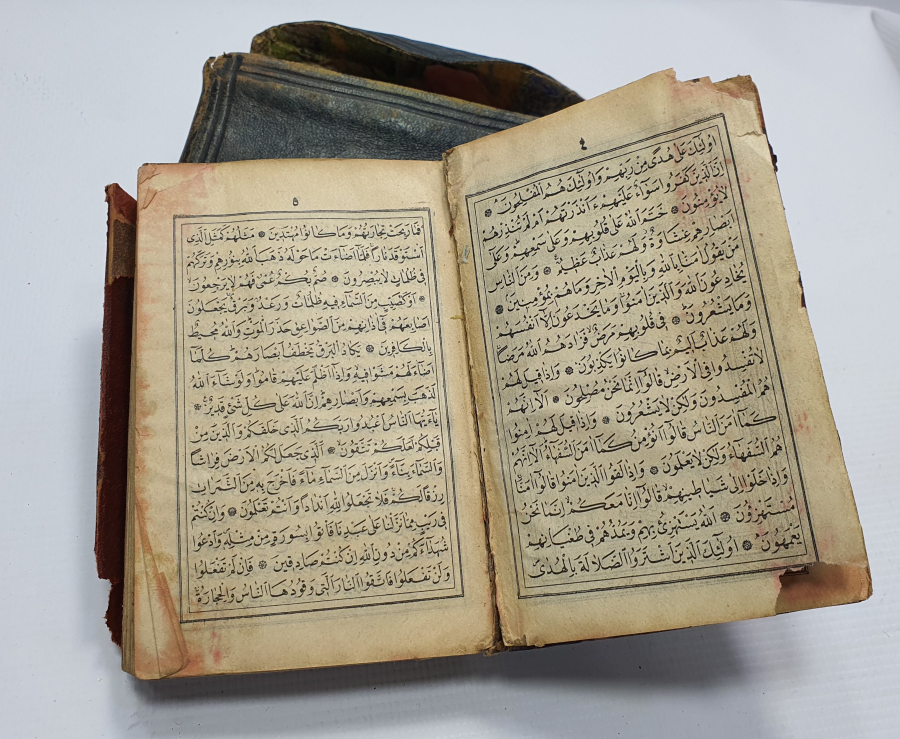 ٤
اُولٰٓئِكَ عَلٰى هُدًى مِنْ رَبِّهِمْ وَاُولٰٓئِكَ هُمُ الْمُفْلِحُونَ ۞
اِنَّ الَّذِينَ كَفَرُوا سَوَٓاءٌ عَلَيْهِمْ ءَاَنْذَرْتَهُمْ اَمْ لَمْ تُنْذِرْهُمْ
لَا يُؤْمِنُونَ ۞ خَتَمَ اللهُ عَلٰى قُلُوبِهِمْ وَعَلٰى سَمْعِهِمْ وَعَلٰٓى
اَبْصَارِهِمْ غِشَاوَةٌ وَلَهُمْ عَذَابٌ عَظِيمٌ ۞ وَمِنَ النَّاسِ
مَنْ يَقُولُ اٰمَنَّا بِاللهِ وَبِالْيَوْمِ الْاٰخِرِ وَمَاهُمْ بِمُؤْمِنِينَ ۞
يُخَادِعُونَ اللهَ وَالَّذِينَ اٰمَنُوا وَمَا يَخْدَعُونَ اِلَّٓا اَنْفُسَهُمْ
وَمَا يَشْعُرُونَ ۞ فِى قُلُوبِهِمْ مَرَضٌ فَزَادَهُمُ اللهُ مَرَضًا
وَلَهُمْ عَذَابٌ اَلِيمٌ بِمَا كَانُوا يَكْذِبُونَ ۞ وَاِذَا قِيلَ لَهُمْ
لَا تُفْسِدُوا فِى الْاَرْضِ قَالُٓوا اِنَّمَا نَحْنُ مُصْلِحُونَ ۞ اَلَٓا اِنَّهُمْ
هُمُ الْمُفْسِدُونَ وَلٰكِنْ لَا يَشْعُرُونَ ۞ وَاِذَا قِيلَ لَهُمْ اٰمِنُوا
كَمَٓا اٰمَنَ النَّاسُ قَالُٓوا اَنُؤْمِنُ كَمَٓا اٰمَنَ السُّفَهَٓاءُ اَلَٓا اِنَّهُمْ
هُمُ السُّفَهَٓاءُ وَلٰكِنْ لَا يَعْلَمُونَ ۞ وَاِذَا لَقُوا الَّذِينَ اٰمَنُوا قَالُٓوا اٰمَنَّا
وَاِذَا خَلَوْا اِلٰى شَيَاطِينِهِمْ قَالُٓوا اِنَّا مَعَكُمْ اِنَّمَا نَحْنُ
مُسْتَهْزِؤُنَ ۞ اَللهُ يَسْتَهْزِئُ بِهِمْ وَيَمُدُّهُمْ فِى طُغْيَانِهِمْ
يَعْمَهُونَ ۞ اُولٰٓئِكَ الَّذِينَ اشْتَرَوُا الضَّلَالَةَ بِالْهُدٰى
٥
فَمَا رَبِحَتْ تِجَارَتُهُمْ وَمَا كَانُوا مُهْتَدِينَ ۞ مَثَلُهُمْ كَمَثَلِ الَّذِى
اسْتَوْقَدَ نَارًا فَلَمَّٓا اَضَٓاءَتْ مَا حَوْلَهُ ذَهَبَ اللهُ بِنُورِهِمْ وَتَرَكَهُمْ
فِى ظُلُمَاتٍ لَا يُبْصِرُونَ ۞ صُمٌّ بُكْمٌ عُمْىٌ فَهُمْ لَا يَرْجِعُونَ
۞ اَوْ كَصَيِّبٍ مِنَ السَّمَٓاءِ فِيهِ ظُلُمَاتٌ وَرَعْدٌ وَبَرْقٌ يَجْعَلُونَ
اَصَابِعَهُمْ فِٓى اٰذَانِهِمْ مِنَ الصَّوَاعِقِ حَذَرَ الْمَوْتِ وَاللهُ مُحِيطٌ
بِالْكَافِرِينَ ۞ يَكَادُ الْبَرْقُ يَخْطَفُ اَبْصَارَهُمْ كُلَّمَٓا
اَضَٓاءَ لَهُمْ مَشَوْا فِيهِ وَاِذَٓا اَظْلَمَ عَلَيْهِمْ قَامُوا وَلَوْ شَٓاءَ اللهُ
لَذَهَبَ بِسَمْعِهِمْ وَاَبْصَارِهِمْ اِنَّ اللهَ عَلٰى كُلِّ شَىْءٍ قَدِيرٌ ۞
يَٓا اَيُّهَا النَّاسُ اعْبُدُوا رَبَّكُمُ الَّذِى خَلَقَكُمْ وَالَّذِينَ مِنْ
قَبْلِكُمْ لَعَلَّكُمْ تَتَّقُونَ ۞ اَلَّذِى جَعَلَ لَكُمُ الْاَرْضَ فِرَاشًا
وَالسَّمَٓاءَ بِنَٓاءً وَاَنْزَلَ مِنَ السَّمَٓاءِ مَٓاءً فَاَخْرَجَ بِهِ مِنَ الثَّمَرَاتِ
رِزْقًا لَكُمْ فَلَا تَجْعَلُوا لِلّٰهِ اَنْدَادًا وَاَنْتُمْ تَعْلَمُونَ ۞ وَاِنْ كُنْتُمْ
فِى رَيْبٍ مِمَّا نَزَّلْنَا عَلٰى عَبْدِنَا فَأْتُوا بِسُورَةٍ مِنْ مِثْلِهِ وَادْعُوا
شُهَدَٓاءَكُمْ مِنْ دُونِ اللهِ اِنْ كُنْتُمْ صَادِقِينَ ۞ فَاِنْ لَمْ تَفْعَلُوا
وَلَنْ تَفْعَلُوا فَاتَّقُوا النَّارَ الَّتِى وَقُودُهَا النَّاسُ وَالْحِجَارَةُ